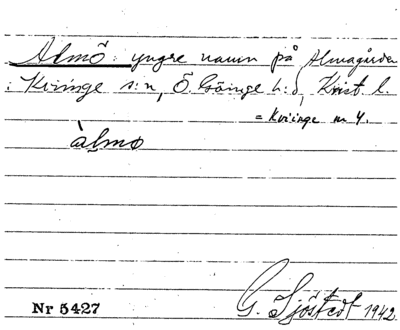 Almö: yngre namn på Almagården
i Kviinge s:n, Ö Göinge h:d, Krist l.
= Kviinge nr 4.
àlmo
G. Sjöstedt 1942
Nr 5427